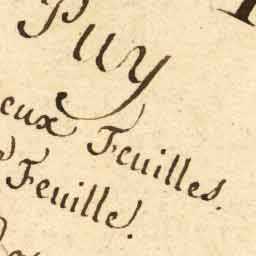 Puy
eux Feuilles.
Feuille.